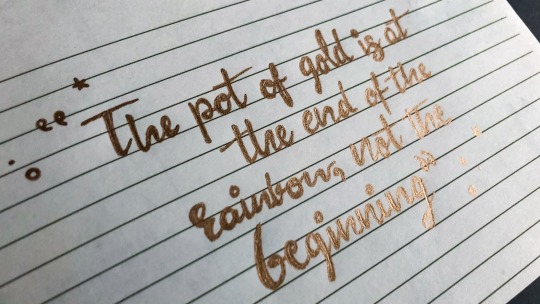 "The pot of gold is at
the end of the
rainbow, not the
beginning"